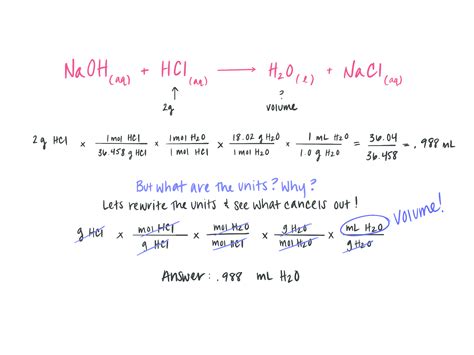 NaOH(aq) + HCl(aq) ⟶ H₂O(l) + NaCl(aq)
↑ ?
2g volume
2g HCl × 1 mol HCl / 36.458 g HCl × 1 mol H₂O / 1 mol HCl × 18.02 g H₂O / 1 mol H₂O × 1 mL H₂O / 1.0 g H₂O = 36.04 / 36.458 = .988 mL
But what are the units? Why?
Lets rewrite the units & see what cancels out!
g HCl × mol HCl / g HCl × mol H₂O / mol HCl × g H₂O / mol H₂O × mL H₂O / g H₂O volume!
Answer: .988 mL H₂O